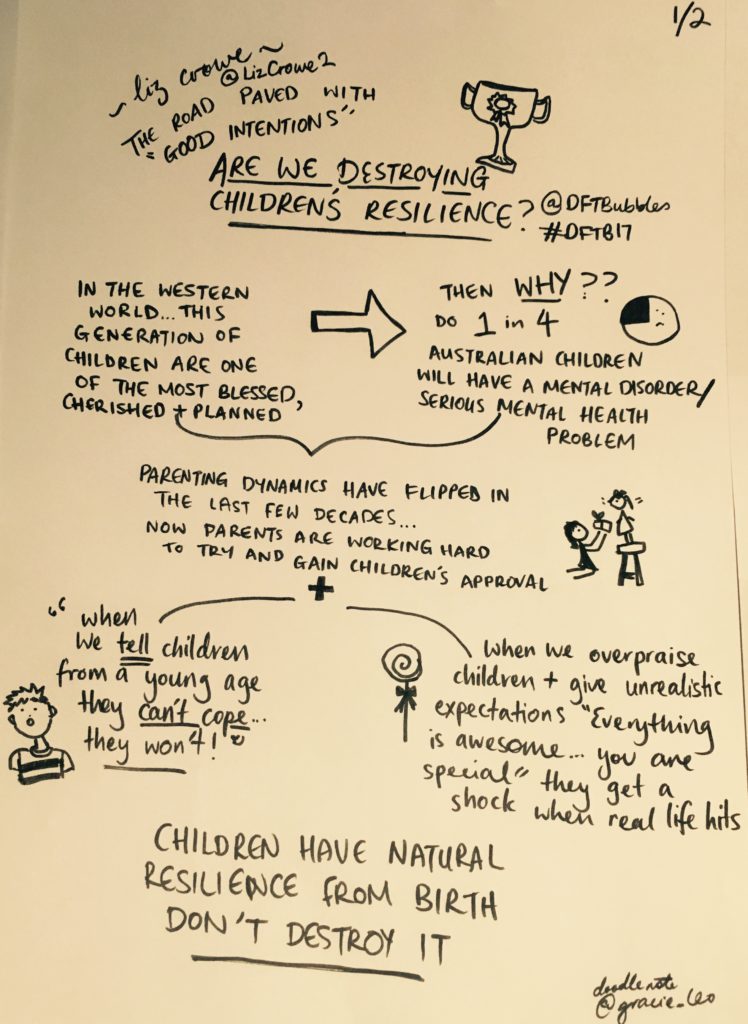 1/2
~ liz crowe ~
@LizCrowe2
THE ROAD PAVED WITH
"GOOD INTENTIONS"
ARE WE DESTROYING
CHILDREN'S RESILIENCE?
@DFTBubbles
#DFTB17
IN THE WESTERN
WORLD... THIS
GENERATION OF
CHILDREN ARE ONE
OF THE MOST BLESSED,
CHERISHED + PLANNED
THEN WHY??
DO 1 in 4
AUSTRALIAN CHILDREN
WILL HAVE A MENTAL DISORDER/
SERIOUS MENTAL HEALTH
PROBLEM
PARENTING DYNAMICS HAVE FLIPPED IN
THE LAST FEW DECADES...
NOW PARENTS ARE WORKING HARD
TO TRY AND GAIN CHILDREN'S APPROVAL
+
"when
we tell children
from a young age
they can't cope...
they won't!"
when we overpraise
children + give unrealistic
expectations "Everything
is awesome... you are
special" they get a
shock when real life hits
CHILDREN HAVE NATURAL
RESILIENCE FROM BIRTH
DON'T DESTROY IT
doodle note
@gracie_leo